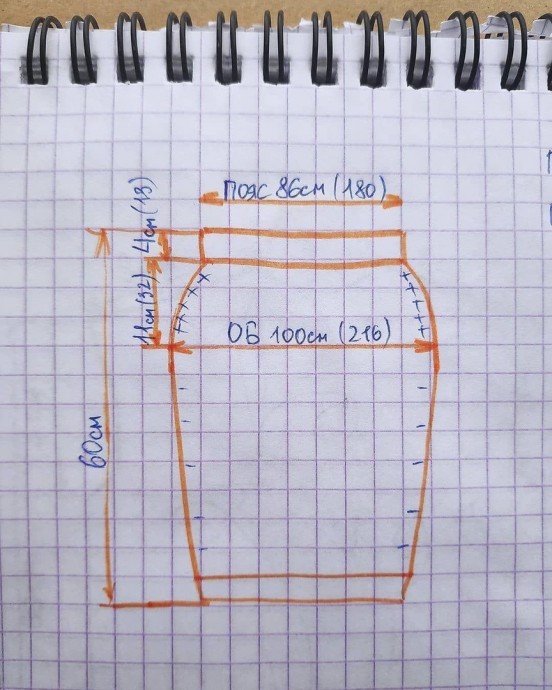 Пояс 86см (180)
4см (13)
11см (32)
ОБ 100см (216)
60см